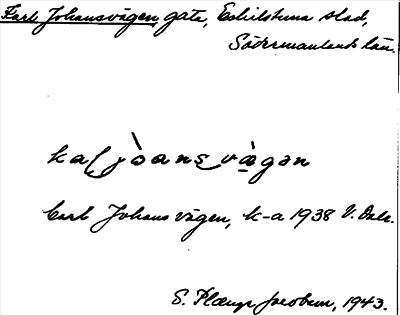 Karl Johansvägen, gata, Eskilstuna stad,
Södermanlands län.
kaljòansvæ̀gən
Carl Johans vägen, k-a 1938 V. Dalr.
S. Jacobson, 1943.